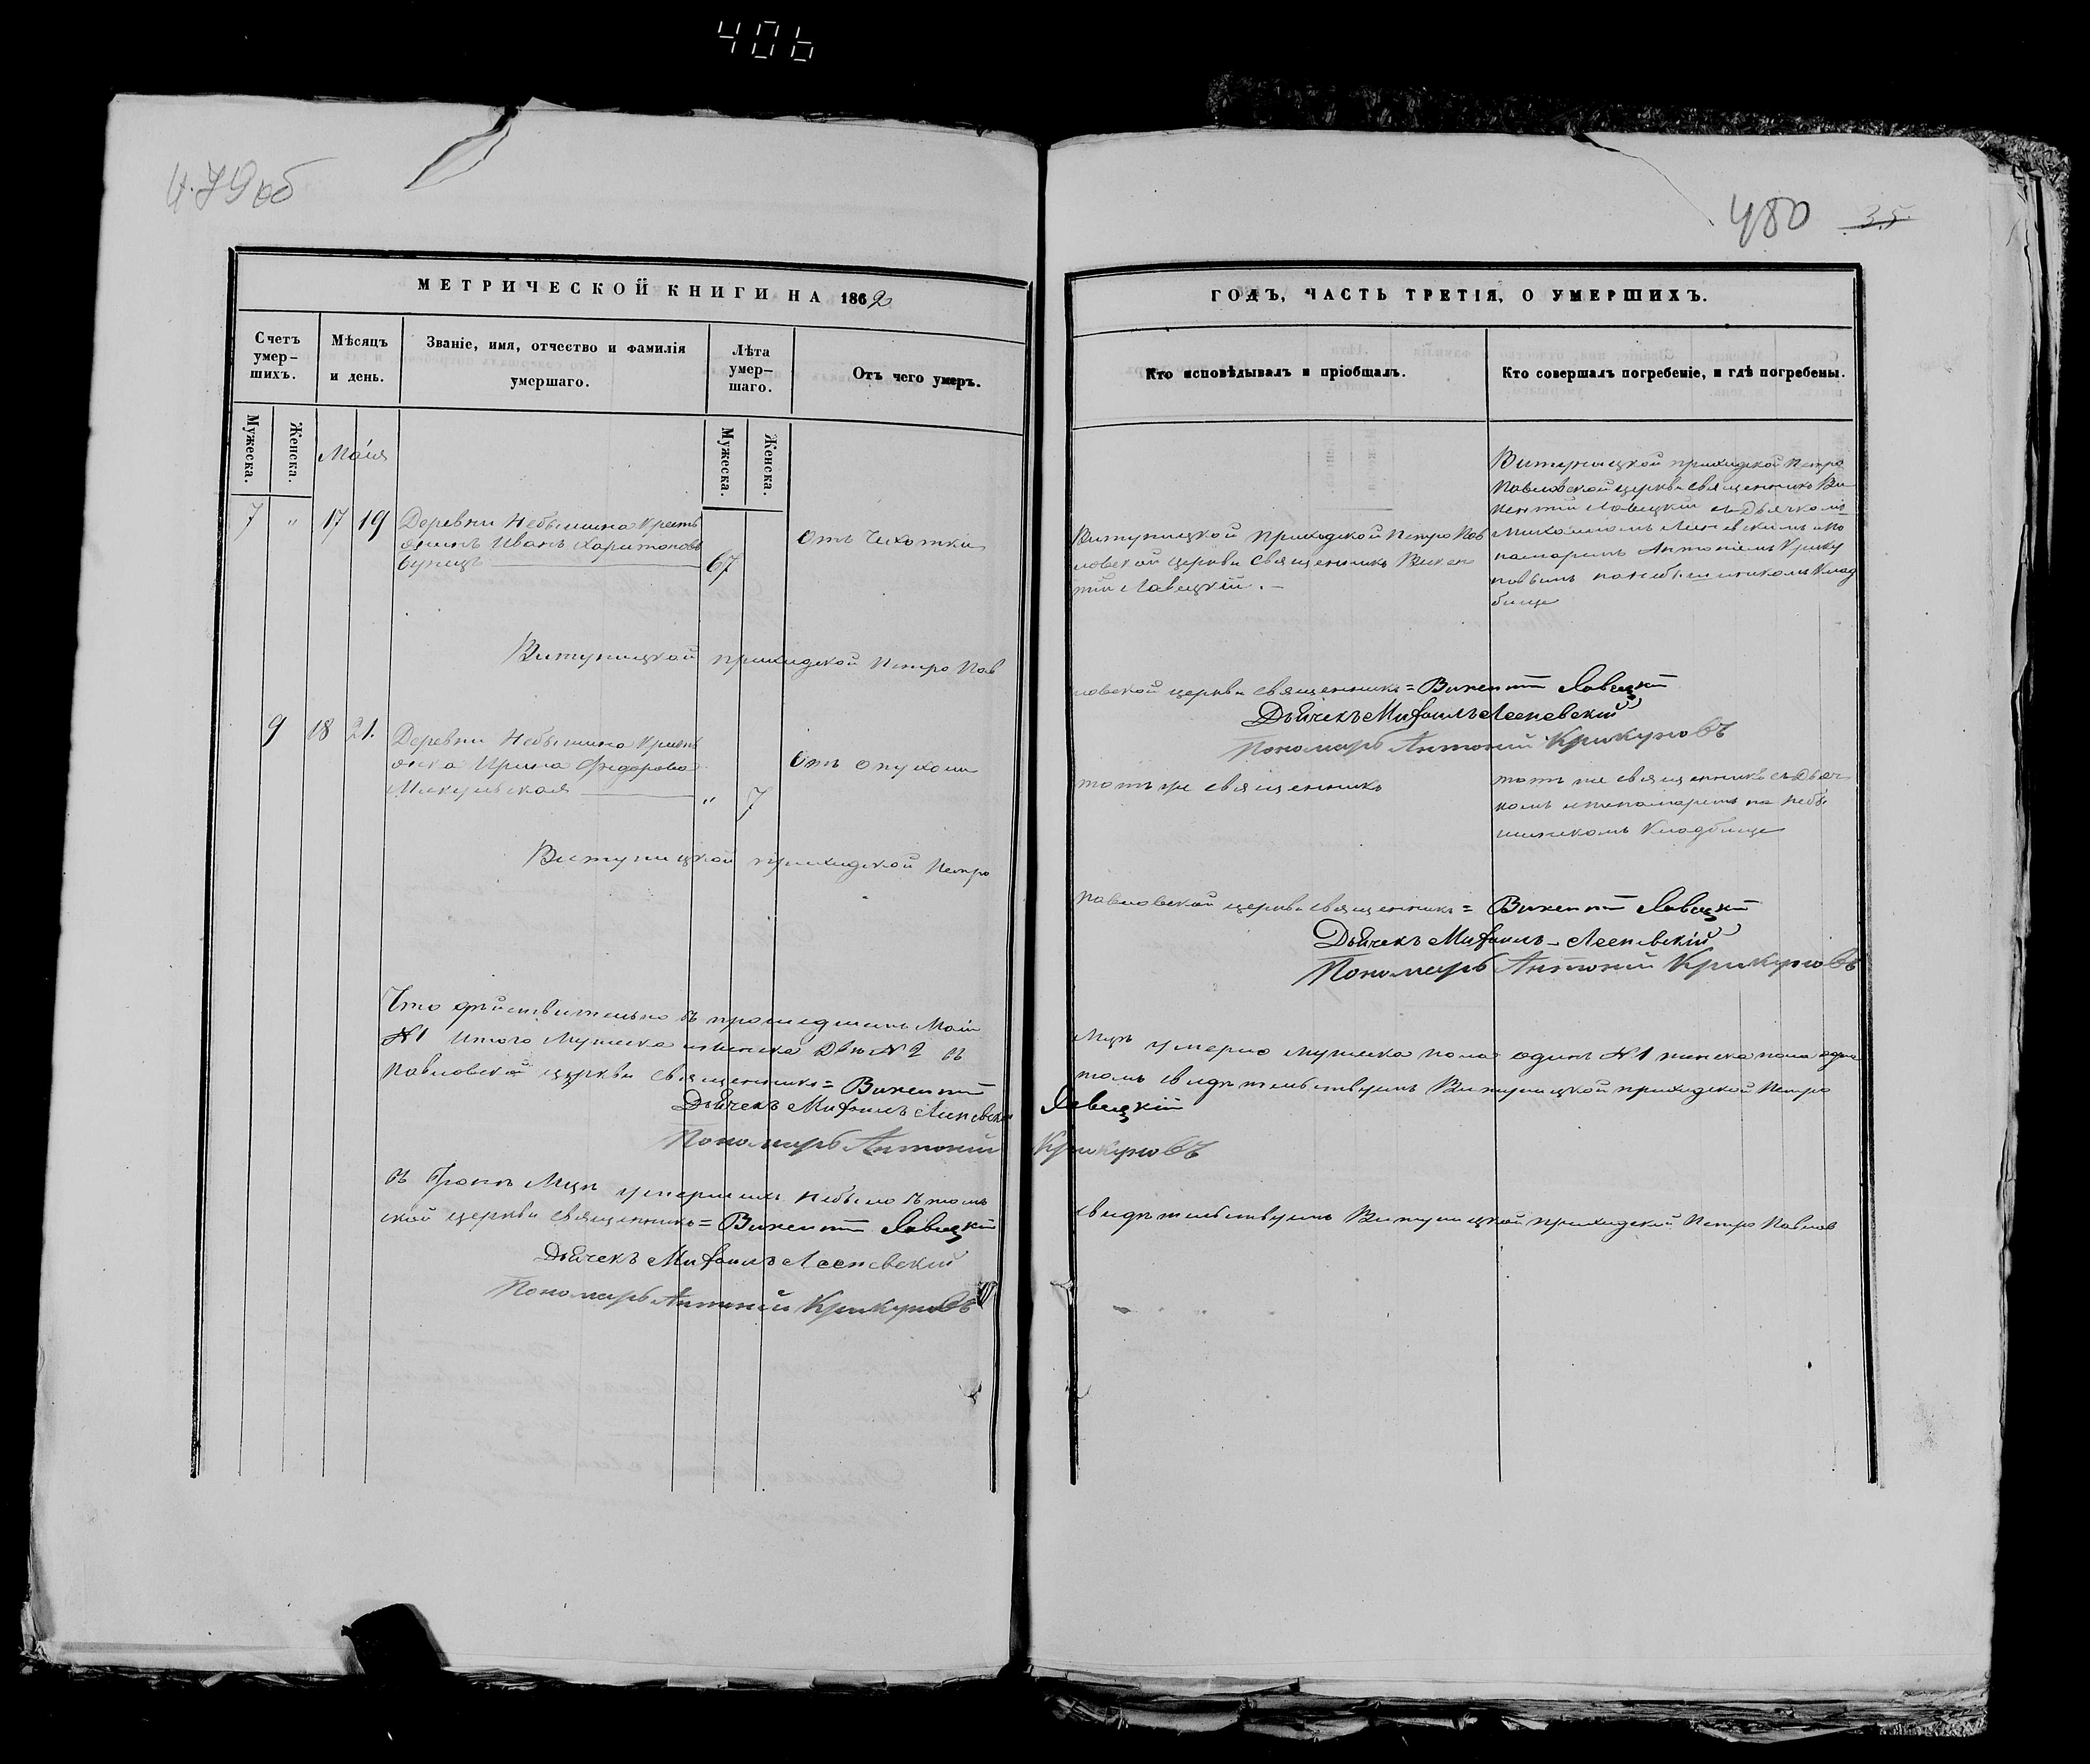 406
479об
МЕТРИЧЕСКОЙ КНИГИ НА 1862
Счетъ умер-
шихъ.
Мѣсяцъ
и день.
Званіе, имя, отчество и фамилія
умершаго.
Лѣта
умер-
шаго.
Отъ чего умеръ.
Мужеска.
Женска.
Мужеска.
Женска.
Маія
7 " 17 19
Деревни Небышина Кресть
янинъ Иванъ Харитоновъ
67
Отъ Чихотки
Витуницкой приходской Петро Пав
9 18 21.
Деревни Небышина Кресть
янка Ирина Федорова
Микульская
" 7
Отъ опухоли
Витуницкой приходской Петро
Что дѣйствительно въ прошедшемъ Маіи
№1 Итого Мужеска и женска Два №2 въ
Павловской церкви священникъ = Викентій
Дьячекъ Михаилъ
Пономарь Антоній
въ Іюнѣ Мцѣ умершихъ небыло въ томъ
ской церкви священникъ = Викентій Лавецкій
Дьячекъ Михаилъ
Пономарь Антоній Крикуновъ
480 35
ГОДЪ, ЧАСТЬ ТРЕТІЯ, О УМЕРШИХЪ.
Кто исповѣдывалъ и пріобщалъ.
Кто совершалъ погребеніе, и гдѣ погребены.
Витуницкой приходской Петро Пав
ловской церкви Священникъ Викен
тій Лавецкій. —
Витуницкой приходской Петро
Павловской церкви священникъ Ви
кентій Лавецкій съ Дьячкомъ
Михаиломъ
памаремъ Антоніемъ Крику
новымъ на небышинскомъ Клад
бище
ловской церкви священникъ = Викентій Лавецкій
Дьячекъ Михаилъ
Пономарь Антоній Крикуновъ
тотъ же священникъ
тотъ же священникъ съ Дьяч
комъ и пономаремъ на Небы
шинскомъ Кладбище
Павловской церкви священникъ = Викентій Лавецкій
Дьячекъ Михаилъ
Пономарь Антоній Крикуновъ
Мцѣ умерло мужеска пола одинъ №1 женска пола одна
томъ свидѣтельствуемъ Витуницкой приходской Петро
Лавецкій
Крикуновъ
свидѣтельствуемъ Витуницкой приходской Петро Павлов